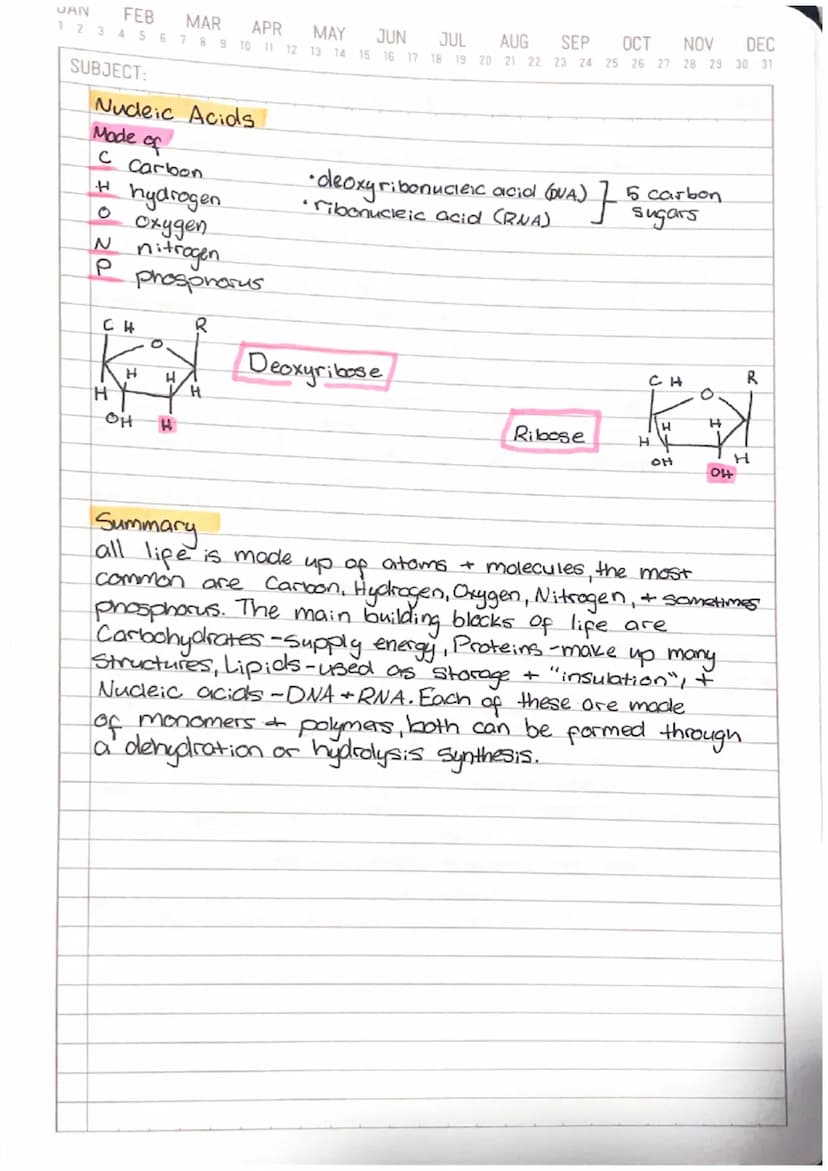 JAN FEB MAR APR MAY JUN JUL AUG SEP OCT NOV DEC
1 2 3 4 5 6 7 8 9 10 11 12 13 14 15 16 17 18 19 20 21 22 23 24 25 26 27 28 29 30 31
SUBJECT:
Nucleic Acids
Made of
C carbon
H hydrogen
O oxygen
N nitrogen
P phosphorus
•deoxyribonucleic acid (DNA)
•ribonucleic acid (RNA)
} 5 carbon
sugars
C H R
O
H H
H H
OH H
Deoxyribose
Ribose
C H R
O
H H
H H
OH OH
Summary
all life is made up of atoms + molecules, the most
common are Carbon, Hydrogen, Oxygen, Nitrogen, + sometimes
phosphorus. The main building blocks of life are
Carbohydrates -supply energy, Proteins -make up many
Structures, Lipids -used as storage + "insulation", +
Nucleic acids -DNA + RNA. Each of these are made
of monomers + polymers, both can be formed through
a dehydration or hydrolysis synthesis.